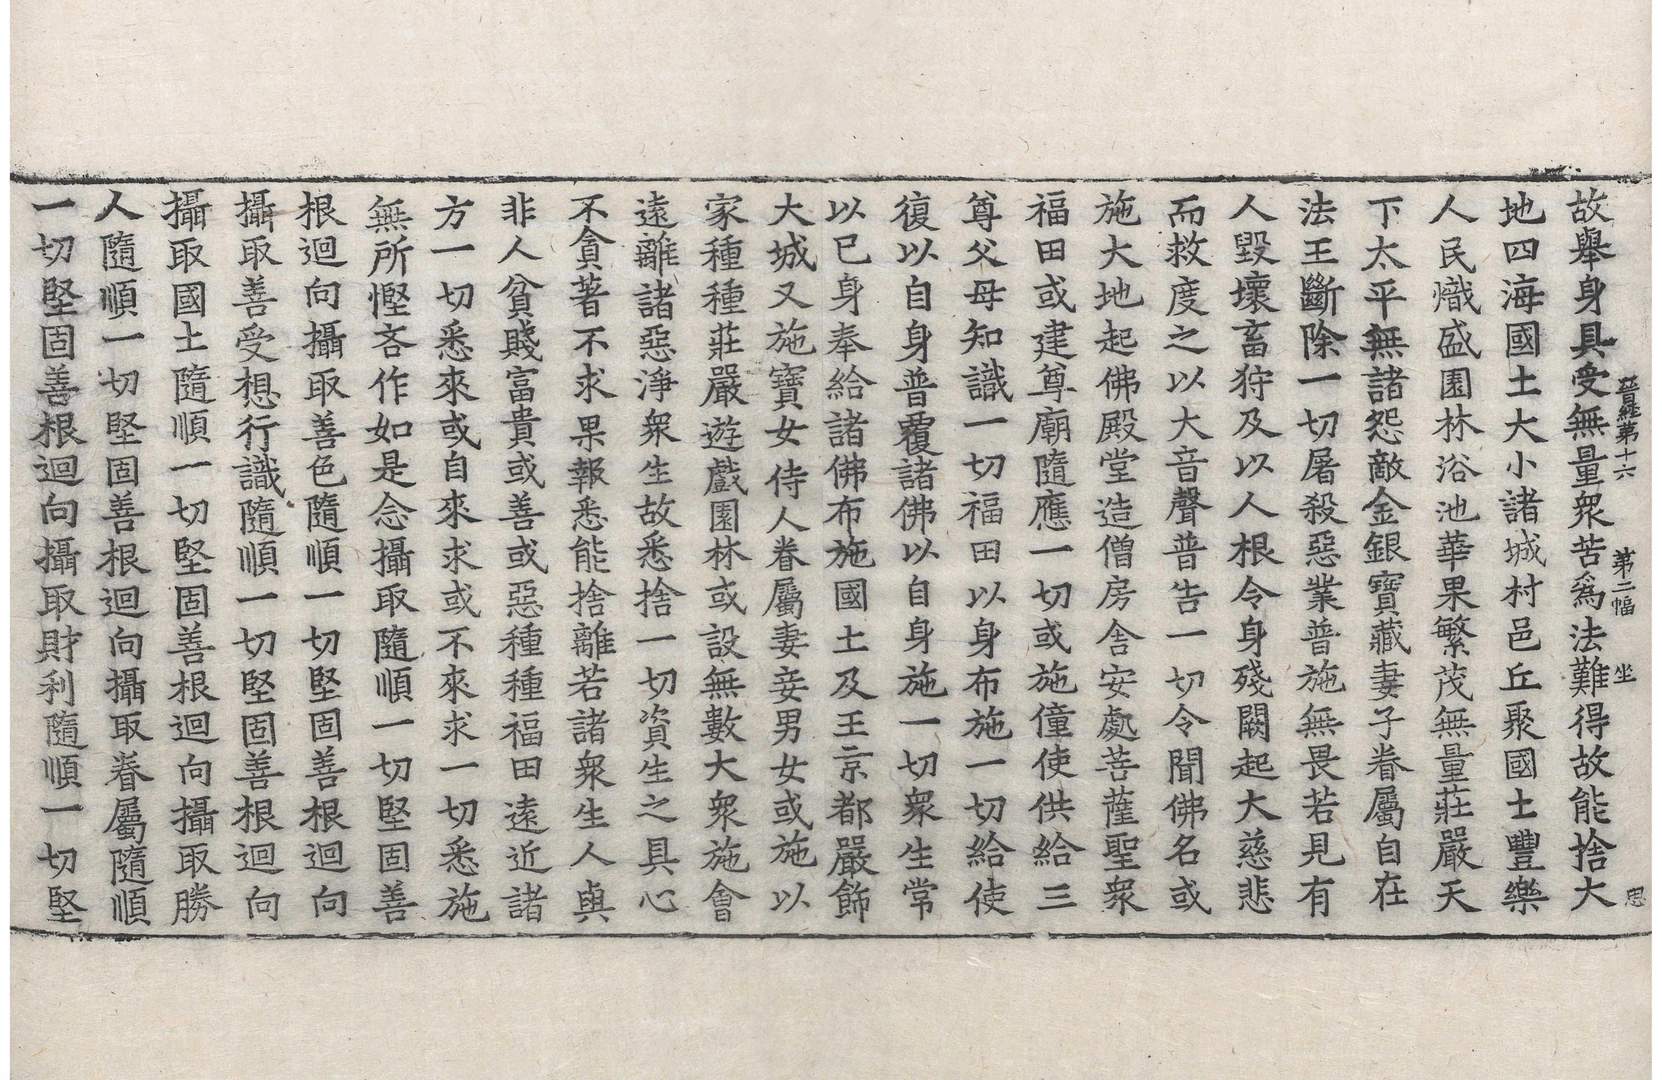 故舉身具受無量衆苦爲法難得故能捨大
晉經第十六 第二幅 坐 思
地四海國土大小諸城村邑丘聚國土豐樂
人民熾盛園林浴池華果繁茂無量莊嚴天
下太平無諸怨敵金銀寶藏妻子眷屬自在
法王斷除一切屠殺惡業普施無畏若見有
人毀壞畜狩及以人根令身殘闕起大慈悲
而救度之以大音聲普告一切令聞佛名或
施大地起佛殿堂造僧房舍安處菩薩聖衆
福田或建尊廟隨應一切或施僮使供給三
尊父母知識一切福田以身布施一切給使
復以自身普覆諸佛以自身施一切衆生常
以已身奉給諸佛布施國土及王京都嚴飾
大城又施寶女侍人眷屬妻妾男女或施以
家種種莊嚴遊戲園林或設無數大衆施會
遠離諸惡淨衆生故悉捨一切資生之具心
不貪著不求果報悉能捨離若諸衆生人與
非人貧賤富貴或善或惡種種福田遠近諸
方一切悉來或自來求或不來求一切悉施
無所慳吝作如是念攝取隨順一切堅固善
根迴向攝取善色隨順一切堅固善根迴向
攝取善受想行識隨順一切堅固善根迴向
攝取國土隨順一切堅固善根迴向攝取勝
人隨順一切堅固善根迴向攝取眷屬隨順
一切堅固善根迴向攝取財利隨順一切堅